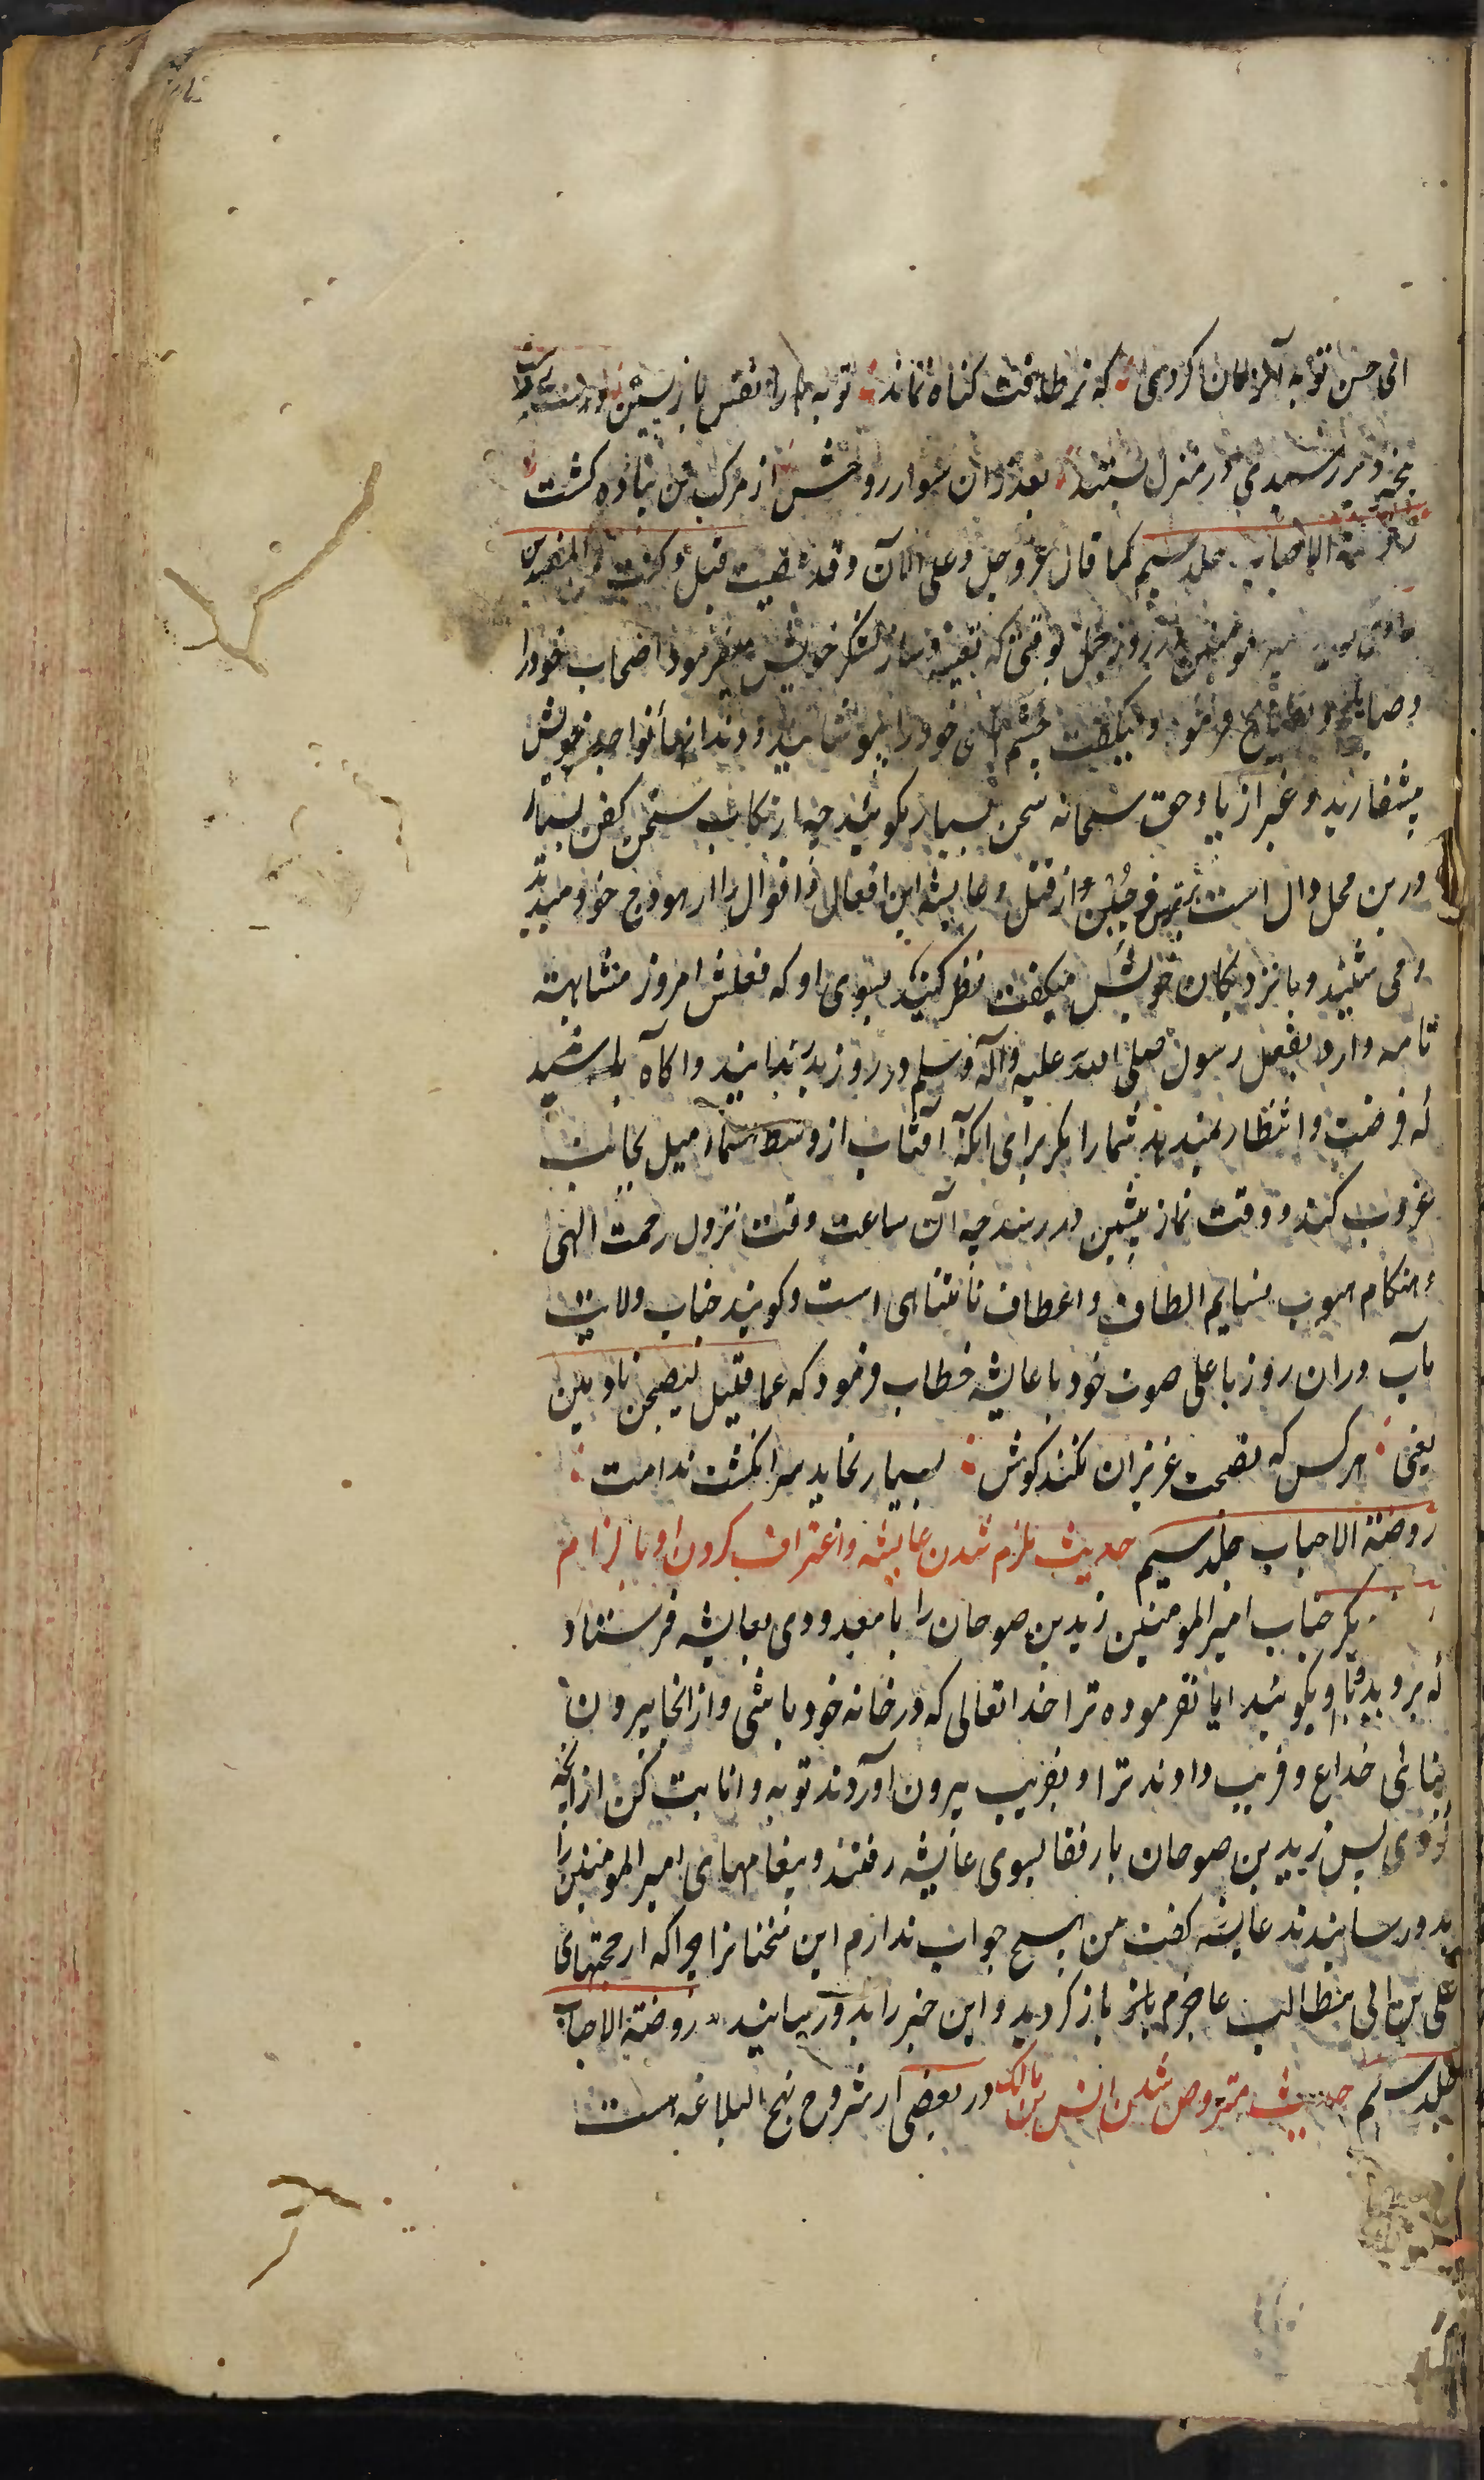 حسن توبه آنزمان کردی که ترا طاقت گناه نماند توبه را نفس بازپسین دست رد
بیخبر دیر رسیدی در منزل بستند بعد ازان سوار روحش از مرکب تن پیاده گشت
روضة الاحباب جلد سیم کما قال عز و جل و علی الآن وقد عصیت قبل وکنت من المفسدین
روز جمل بوقتی که تعبیه و ساز لشکر خویش میفرمود اصحاب خود را
وصایا و نصایح فرمود و میگفت چشمهای خود را بپوشانید و دندانها نواجد خویش
بیفشارید و غیر از یاد حق سبحانه سخن بسیار مگوئید چه ارتکاب سخن گفتن بسیار
درین محل دال است بر ترس و جبن و از قتل و عایشه این افعال و اقوال را از هودج خود میدید
و می شنید و با نزدیکان خویش میگفت نظر کنید بسوی او که فعلش امروز مشابهت
تامه دارد بفعل رسول صلی الله علیه وآله وسلم در روز بدر بدانید و آگاه باشید
که فرصت و انتظار نمیدهد شما را مگر برای آنکه آفتاب از وسط سما میل بجانب
غروب کند و وقت نماز پیشین در رسد چه آن ساعت وقت نزول رحمت الهی
و هنگام هبوب نسایم الطاف و اعطاف نامتناهی است و گویند جناب ولایت
مآب دران روز باعلی صوت خود با عایشه خطاب فرمود که عما قلیل لیصبحن نادمین
یعنی هر کس که نصیحت عزیزان نکند گوش بسیار بخاید سر انگشت ندامت
روضة الاحباب جلد سیم حدیث ملزم شدن عایشه و اعتراف کردن او بالزام
دیگر جناب امیر المومنین زید بن صوحان را با معدودی بعایشه فرستاد
که بروید و باو بگوئید ایا نفرموده ترا خدا تعالی که در خانه خود باشی و از انجا بیرون
نیائی خداع و فریب دادند ترا و بفریب بیرون آوردند توبه و انابت کن از آنچه
کردی پس زید بن صوحان با رفقا بسوی عایشه رفتند و پیغامهای امیر المومنین را
بدو رسانیدند عایشه گفت من هیچ جواب ندارم این سخنانرا چرا که از حجتهای
علی بن ابی طالب عاجزم باز گردید و این خبر را بدو رسانید روضة الاحباب
جلد سیم حدیث مبروص شدن انس بن مالک در بعضی از شروح نهج البلاغه است